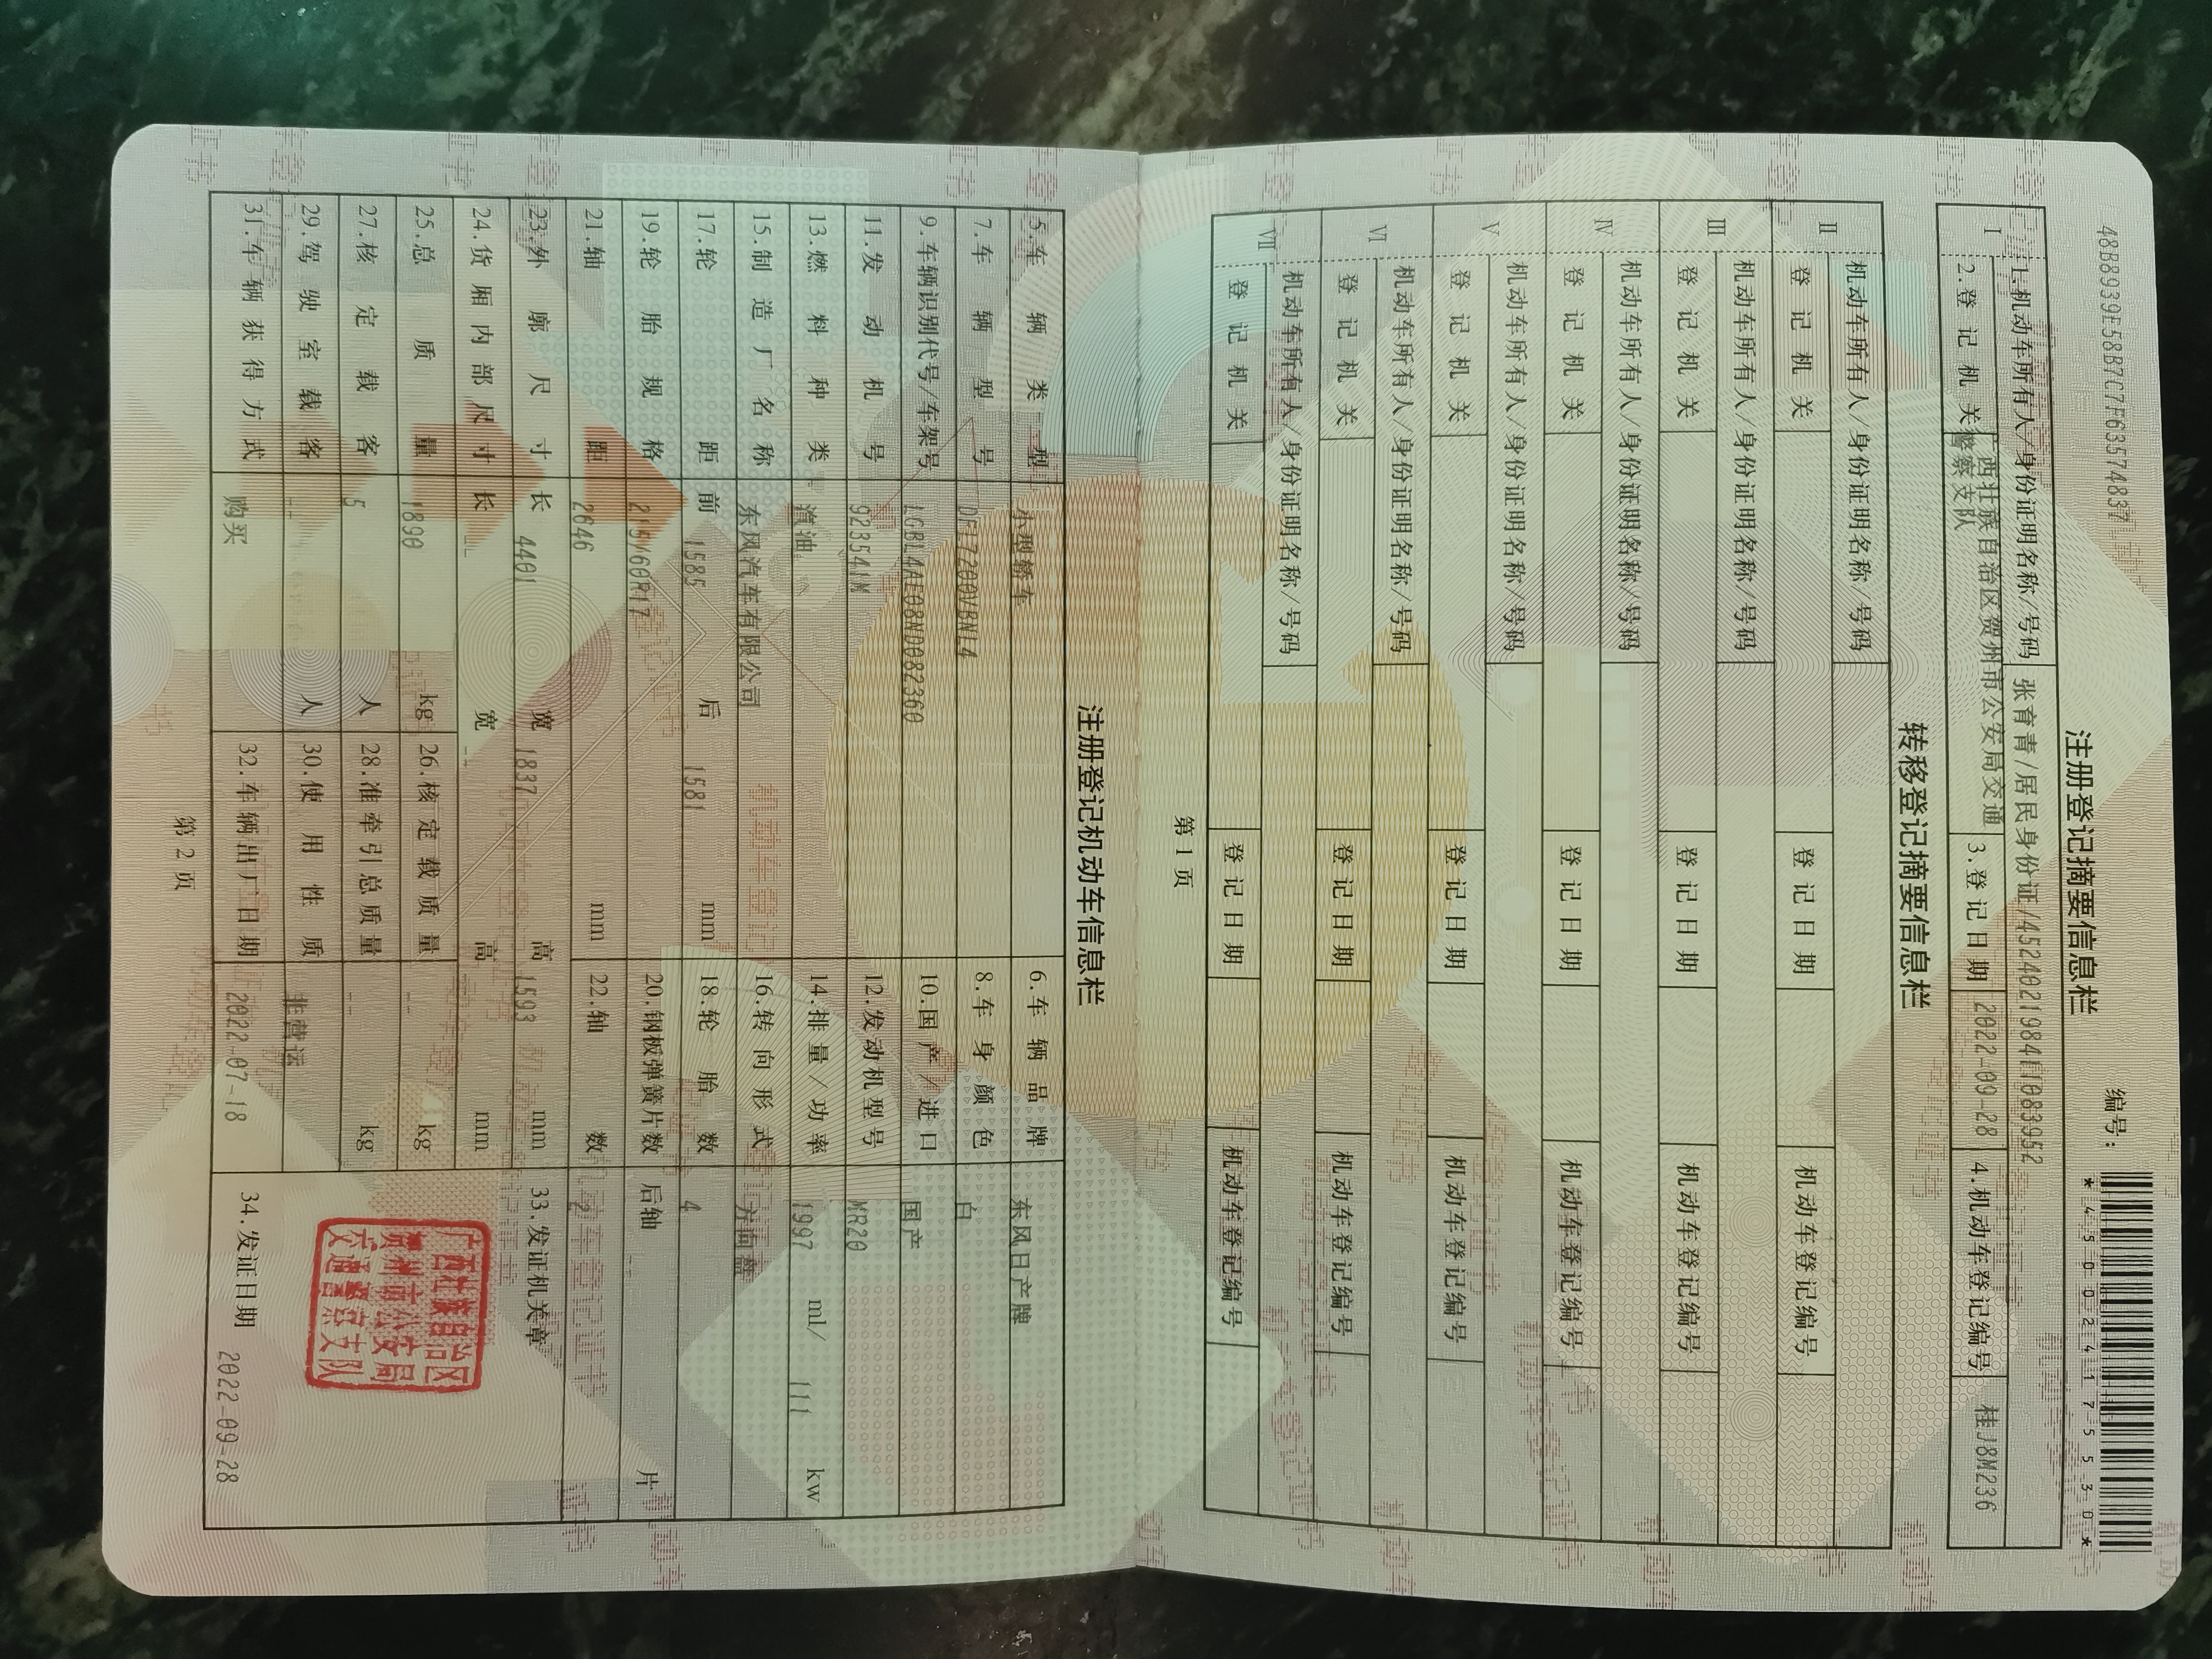 48B8939E58B7C7F633574837
编号:
*450024175530*
注册登记摘要信息栏
Ⅰ 1.机动车所有人/身份证明名称/号码 张育青/居民身份证/452402198411083952
2.登记机关 广西壮族自治区贺州市公安局交通警察支队 3.登记日期 2022-09-28 4.机动车登记编号 桂J8M236
转移登记摘要信息栏
Ⅱ 机动车所有人/身份证明名称/号码
登记机关 登记日期 机动车登记编号
Ⅲ 机动车所有人/身份证明名称/号码
登记机关 登记日期 机动车登记编号
Ⅳ 机动车所有人/身份证明名称/号码
登记机关 登记日期 机动车登记编号
Ⅴ 机动车所有人/身份证明名称/号码
登记机关 登记日期 机动车登记编号
Ⅵ 机动车所有人/身份证明名称/号码
登记机关 登记日期 机动车登记编号
Ⅶ 机动车所有人/身份证明名称/号码
登记机关 登记日期 机动车登记编号
第1页
注册登记机动车信息栏
5.车辆类型 小型轿车 6.车辆品牌 东风日产牌
7.车辆型号 DFL7200VBNL4 8.车身颜色 白
9.车辆识别代号/车架号 LGBL4AE08ND082360 10.国产/进口 国产
11.发动机号 923541M 12.发动机型号 MR20
13.燃料种类 汽油 14.排量/功率 1997 ml/ 111 kw
15.制造厂名称 东风汽车有限公司 16.转向形式 方向盘
17.轮距 前 1585 后 1581 mm 18.轮胎数 4
19.轮胎规格 215/60R17 20.钢板弹簧片数 后轴 -- 片
21.轴距 2646 mm 22.轴数 2
23.外廓尺寸 长 4401 宽 1837 高 1593 mm 33.发证机关章
24.货厢内部尺寸 长 -- 宽 -- 高 -- mm
25.总质量 1890 kg 26.核定载质量 -- kg
27.核定载客 5 人 28.准牵引总质量 -- kg
29.驾驶室载客 -- 人 30.使用性质 非营运
31.车辆获得方式 购买 32.车辆出厂日期 2022-07-18 34.发证日期 2022-09-28
广西壮族自治区
贺州市公安局
交通警察支队
第2页